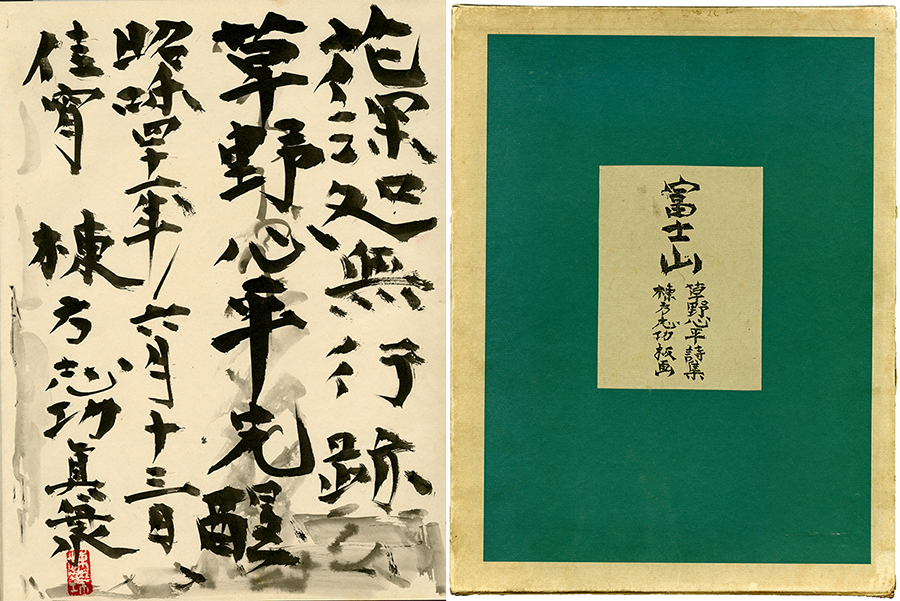 花深処無行跡
草野心平先醒
昭和四十一年六月十三日
佳宵 棟方志功
富士山
草野心平詩集
棟方志功板画